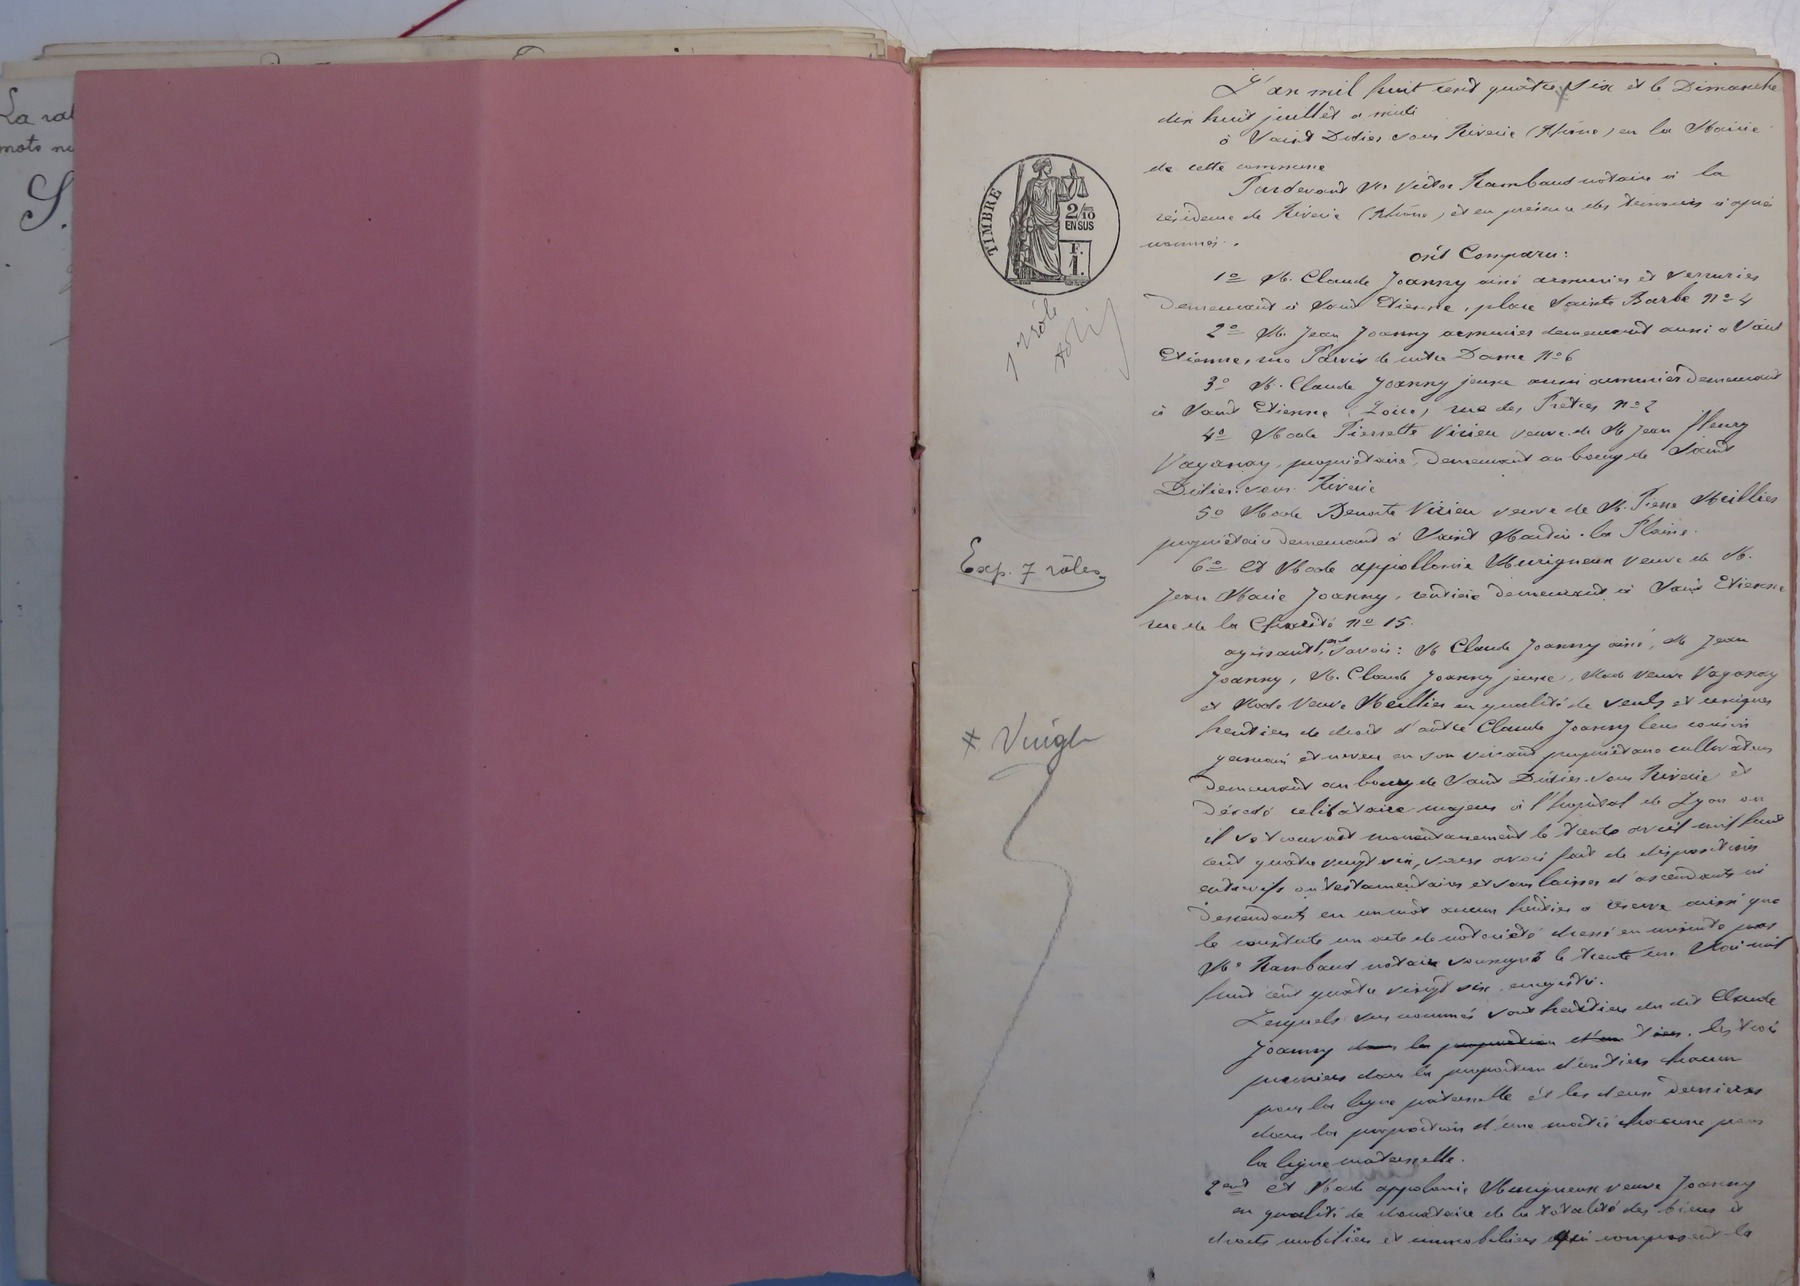 La rat
mots nu
S.
TIMBRE
2/10
EN SUS
F.
1.
1 rôle
Exp. 7 rôles
* Vingt
L'an mil huit cent quatre * six et le Dimanche
dix huit juillet a midi
à Saint Didier sous Riverie (Rhône) en la Mairie
de cette commune
Pardevant Me Victor Rambaud notaire à la
résidence de Riverie (Rhône) et en présence des témoins ci après
nommés.
ont Comparu:
1o M. Claude Joanny ainé armurier et serrurier
demeurant à Saint Etienne, place Sainte Barbe no 4
2o M. Jean Joanny armurier demeurant aussi à Saint
Etienne, rue Parvis de notre Dame no 6
3o M. Claude Joanny jeune aussi armurier demeurant
à Saint Etienne (Loire) rue des Prêtres no 2
4o Made Pierrette Virieu veuve de M. Jean fleury
Vaganay, propriétaire, demeurant au bourg de Saint
Didier-sous-Riverie
5o Made Benoite Virieu veuve de M. Pierre Meillier
propriétaire demeurant à Saint Martin-la-Plaine.
6o Et Made appollonie Murigneux veuve de M.
Jean Marie Joanny, rentière demeurant à Saint Etienne
rue de la Charité no 15.
agissant, savoir: M. Claude Joanny ainé, M. Jean
Joanny, M. Claude Joanny jeune, Made veuve Vaganay
et Made Veuve Meillier en qualité de seuls et uniques
héritiers de droit d'autre Claude Joanny leur cousin
germain et neveu en son vivant propriétaire cultivateur
demeurant au bourg de Saint Didier-sous Riverie et
décédé célibataire majeur à l'hopital de Lyon ou
il se trouvait momentanement le trente avril mil huit
cent quatre vingt six, sans avoir fait de dispositions
entrevifs ou testamentaires et sans laisser d'ascendants ni
descendants en un mot aucun héritier a réserve ainsi que
le constate un acte de notoriété dressé en minute par
Me Rambaud notaire soussigné le trente un Mai mil
huit cent quatre vingt six, enregistré.
Lesquels sus nommés sont héritiers du dit Claude
Joanny dans la proportion d'un tiers. les trois
premiers dans la proportion d'un tiers chacun
pour la ligne paternelle et les deux derniers
dans la proportion d'une moitié chacune pour
la ligne maternelle.
2ent et Made appolonie Murigneux veuve Joanny
en qualité de donataire de la totalité des biens et
droits mobiliers et immobiliers qui composent la